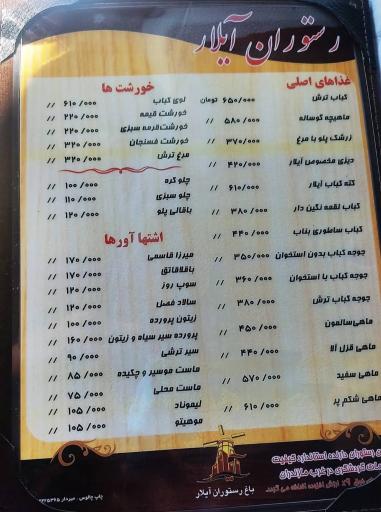 رستوران آیلار
غذاهای اصلی
کباب ترش ۶۵۰/۰۰۰ تومان
ماهیچه گوساله ۵۸۰/۰۰۰ //
زرشک پلو با مرغ ۳۷۰/۰۰۰ //
دیزی مخصوص آیلار ۴۲۰/۰۰۰ //
کته کباب آیلار ۶۱۰/۰۰۰ //
کباب لقمه نگین دار ۳۸۰/۰۰۰ //
کباب ساطوری بناب ۴۴۰/۰۰۰ //
جوجه کباب بدون استخوان ۳۵۰/۰۰۰ //
جوجه کباب با استخوان ۳۶۰/۰۰۰ //
جوجه کباب ترش ۳۸۰/۰۰۰ //
ماهی سالمون ۴۵۰/۰۰۰ //
ماهی قزل آلا ۴۴۰/۰۰۰ //
ماهی سفید ۵۷۰/۰۰۰ //
ماهی شکم پر ۶۱۰/۰۰۰ //
خورشت ها
لوی کباب ۶۱۰/۰۰۰ //
خورشت قیمه ۲۲۰/۰۰۰ //
خورشت قرمه سبزی ۲۲۰/۰۰۰ //
خورشت فسنجان ۳۲۰/۰۰۰ //
مرغ ترش ۳۲۰/۰۰۰ //
چلو کره ۱۰۰/۰۰۰ //
چلو سبزی ۱۱۰/۰۰۰ //
باقالی پلو ۱۲۰/۰۰۰ //
اشتها آورها
میرزا قاسمی ۱۷۰/۰۰۰ //
باقلاقاتق ۱۷۰/۰۰۰ //
سوپ روز ۱۲۰/۰۰۰ //
سالاد فصل ۱۲۰/۰۰۰ //
زیتون پرورده ۱۰۰/۰۰۰ //
پرورده سیر سیاه و زیتون ۱۶۰/۰۰۰ //
سیر ترشی ۹۰/۰۰۰ //
ماست موسیر و چکیده ۸۵/۰۰۰ //
ماست محلی ۷۵/۰۰۰ //
لیموناد ۱۰۵/۰۰۰ //
موهیتو ۱۰۵/۰۰۰ //
رستوران دارنده استاندارد کیفیت
گردشگری در غرب مازندران
ارزش افزوده اضافه می گردد
باغ رستوران آیلار
چاپ چالوس